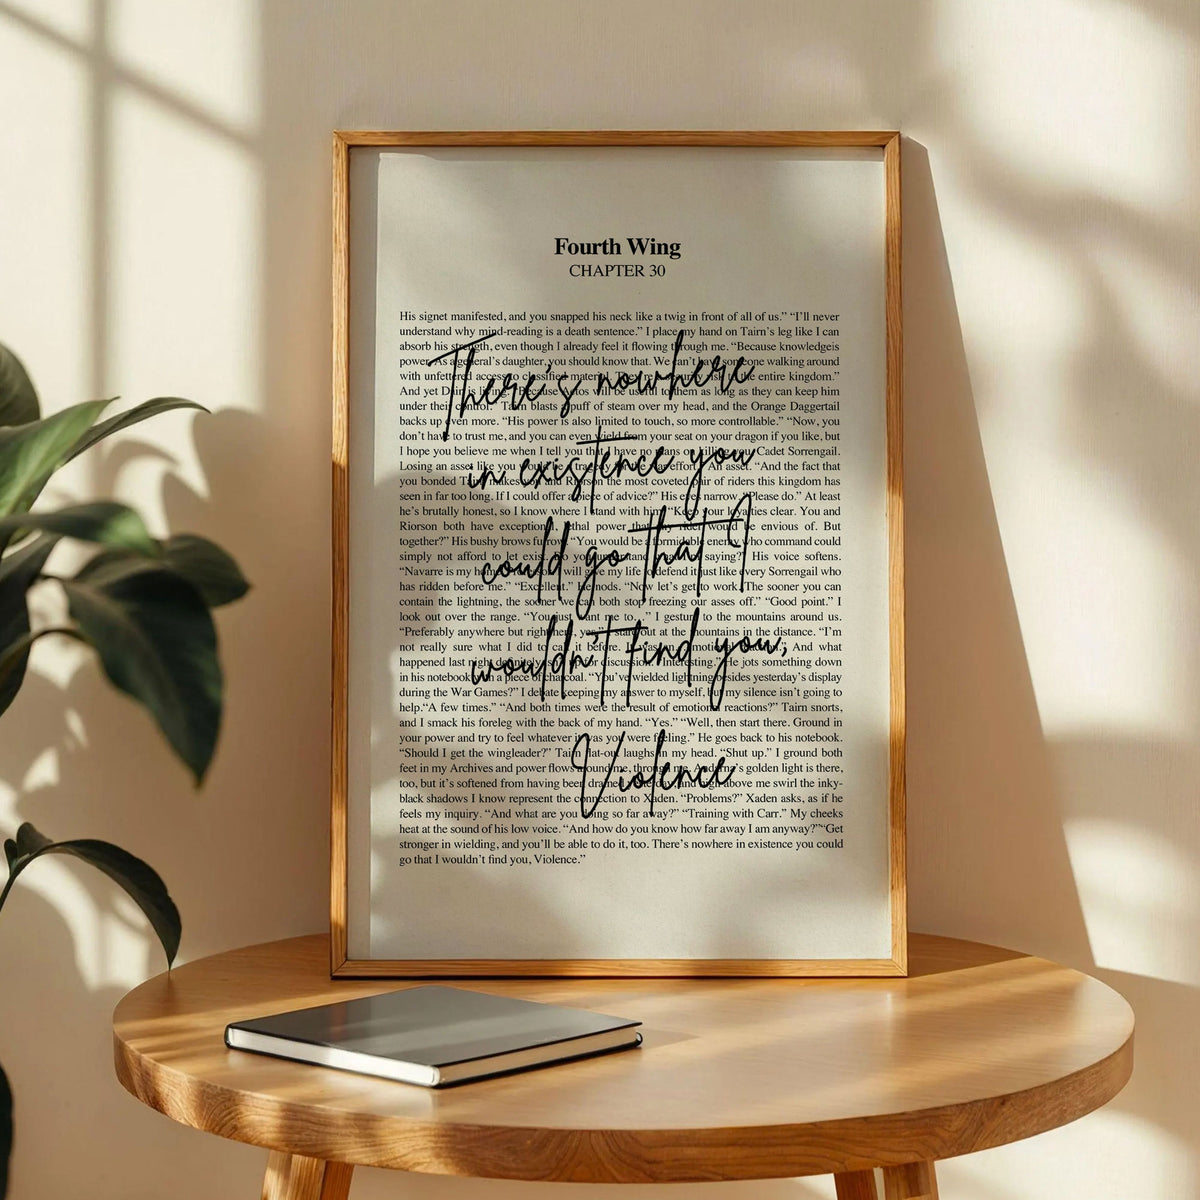 Fourth Wing
CHAPTER 30
His signet manifested, and you snapped his neck like a twig in front of all of us.” “I’ll never
understand why mind-reading is a death sentence.” I place my hand on Tairn’s leg like I can
absorb his strength, even though I already feel it flowing through me. “Because knowledgeis
power. As a general’s daughter, you should know that. We can’t have someone walking around
with unfettered access to classified material. They’re a security risk to the entire kingdom.”
And yet Dain is living. “Because Aetos will be useful to them as long as they can keep him
under their control.” Tairn blasts a puff of steam over my head, and the Orange Daggertail
backs up even more. “His power is also limited to touch, so more controllable.” “Now, you
don’t have to trust me, and you can even wield from your seat on your dragon if you like, but
I hope you believe me when I tell you that I have no plans on killing you, Cadet Sorrengail.
Losing an asset like you would be a tragedy for the war effort.” An asset. “And the fact that
you bonded Tairn makes you and Riorson the most coveted pair of riders this kingdom has
seen in far too long. If I could offer a piece of advice?” His eyes narrow. “Please do.” At least
he’s brutally honest, so I know where I stand with him. “Keep your loyalties clear. You and
Riorson both have exceptional, lethal power that any rider would be envious of. But
together?” His bushy brows furrow. “You would be a formidable enemy who command could
simply not afford to let exist. Do you understand what I’m saying?” His voice softens.
“Navarre is my home, Professor. I will give my life to defend it just like every Sorrengail who
has ridden before me.” “Excellent.” He nods. “Now let’s get to work. The sooner you can
contain the lightning, the sooner we can both stop freezing our asses off.” “Good point.” I
look out over the range. “You just want me to…” I gesture to the mountains around us.
“Preferably anywhere but right here, yes.” I stare out at the mountains in the distance. “I’m
not really sure what I did to call it before. It was an emotional reaction.” And what
happened last night definitely isn’t up for discussion. “Interesting.” He jots something down
in his notebook with a piece of charcoal. “You’ve wielded lightning besides yesterday’s display
during the War Games?” I debate keeping my answer to myself, but my silence isn’t going to
help.“A few times.” “And both times were the result of emotional reactions?” Tairn snorts,
and I smack his foreleg with the back of my hand. “Yes.” “Well, then start there. Ground in
your power and try to feel whatever it was you were feeling.” He goes back to his notebook.
“Should I get the wingleader?” Tairn flat-out laughs in my head. “Shut up.” I ground both
feet in my Archives and power flows around me, through me. Andarna’s golden light is there,
too, but it’s softened from having been drained yesterday, and high above me swirl the inky-
black shadows I know represent the connection to Xaden. “Problems?” Xaden asks, as if he
feels my inquiry. “And what are you doing so far away?” “Training with Carr.” My cheeks
heat at the sound of his low voice. “And how do you know how far away I am anyway?”“Get
stronger in wielding, and you’ll be able to do it, too. There’s nowhere in existence you could
go that I wouldn’t find you, Violence.”
There's nowhere
in existence you
could go that I
wouldn't find you,
Violence